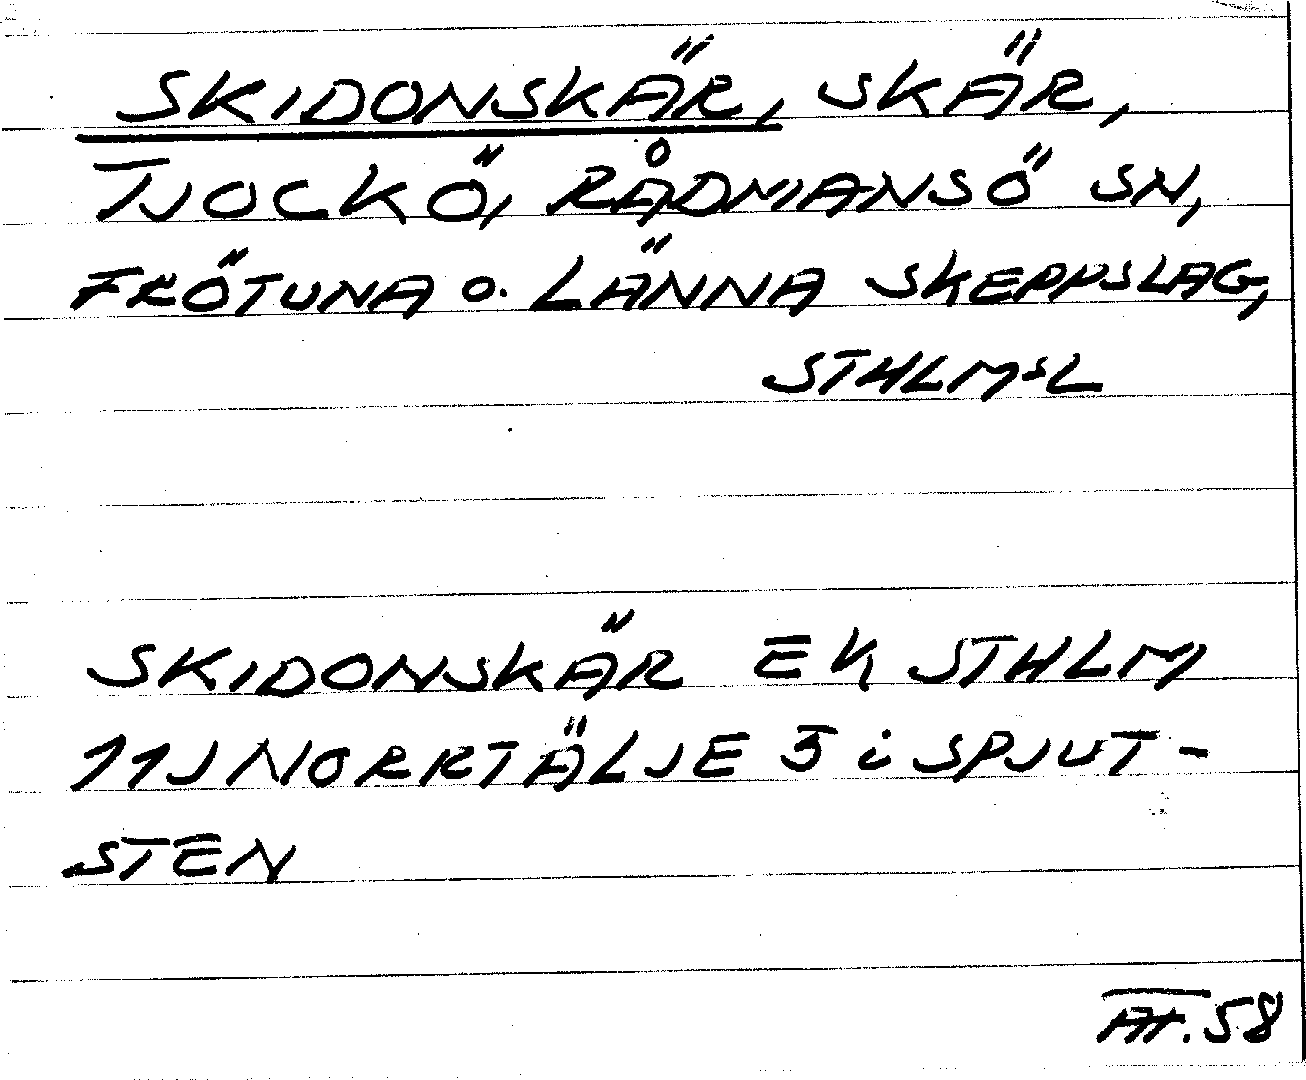 SKIDONSKÄR, SKÄR,
TJOCKÖ, RÅDMANSÖ SN,
FRÖTUNA O. LÄNNA SKEPPSLAG,
STHLMSL
SKIDONSKÄR EK, STHLM
11J NORRTÄLJE 3 i SPJUT-
STEN
58